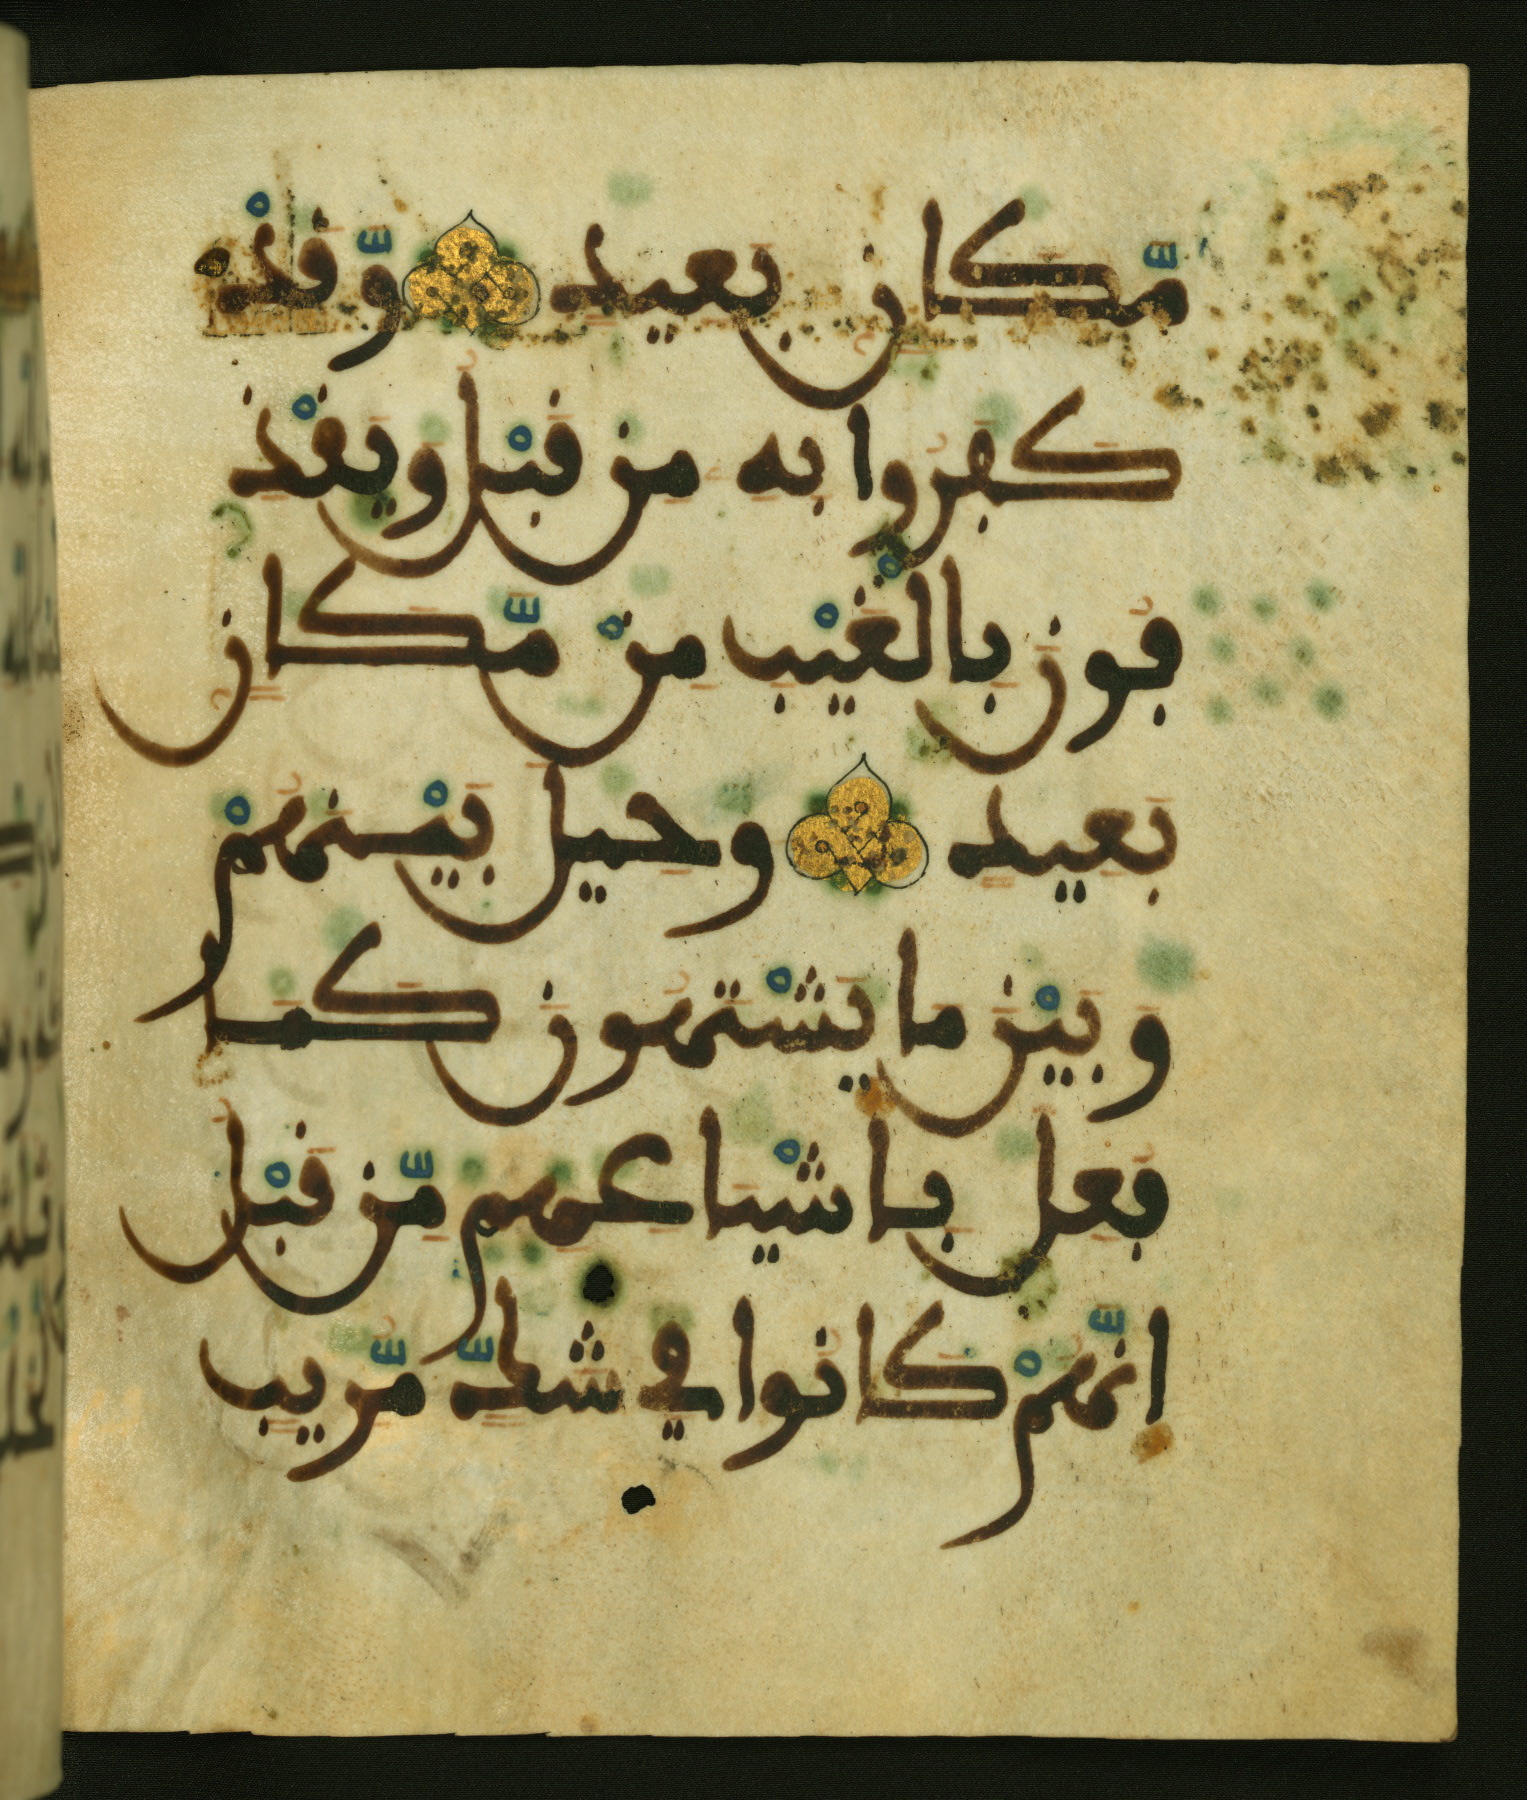 مَّكَانٍ بَعِيدٍ وَّقَدْ
كَفَرُوا بِهِ مِن قَبْلُ وَيَقْذِ
فُونَ بِالْغَيْبِ مِنْ مَّكَانٍ
بَعِيدٍ وَحِيلَ بَيْنَهُمْ
وَبَيْنَ مَا يَشْتَهُونَ كَمَا
فُعِلَ بِأَشْيَاعِهِم مِّن قَبْلُ
إِنَّهُمْ كَانُوا فِي شَكٍّ مُّرِيبٍ